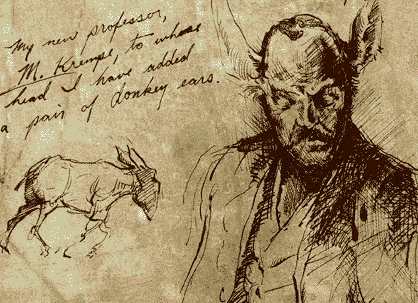 My new professor,
M. Krempe, to whose
head I have added
a pair of donkey ears.